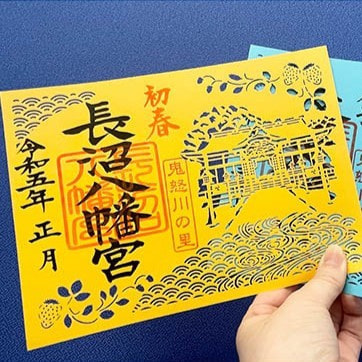 初春
長沼八幡宮
令和五年 正月
鬼怒川の里